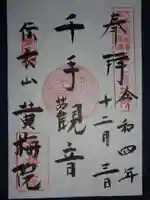 奉拝
令和四年
十二月三日
千手観音
黄梅院